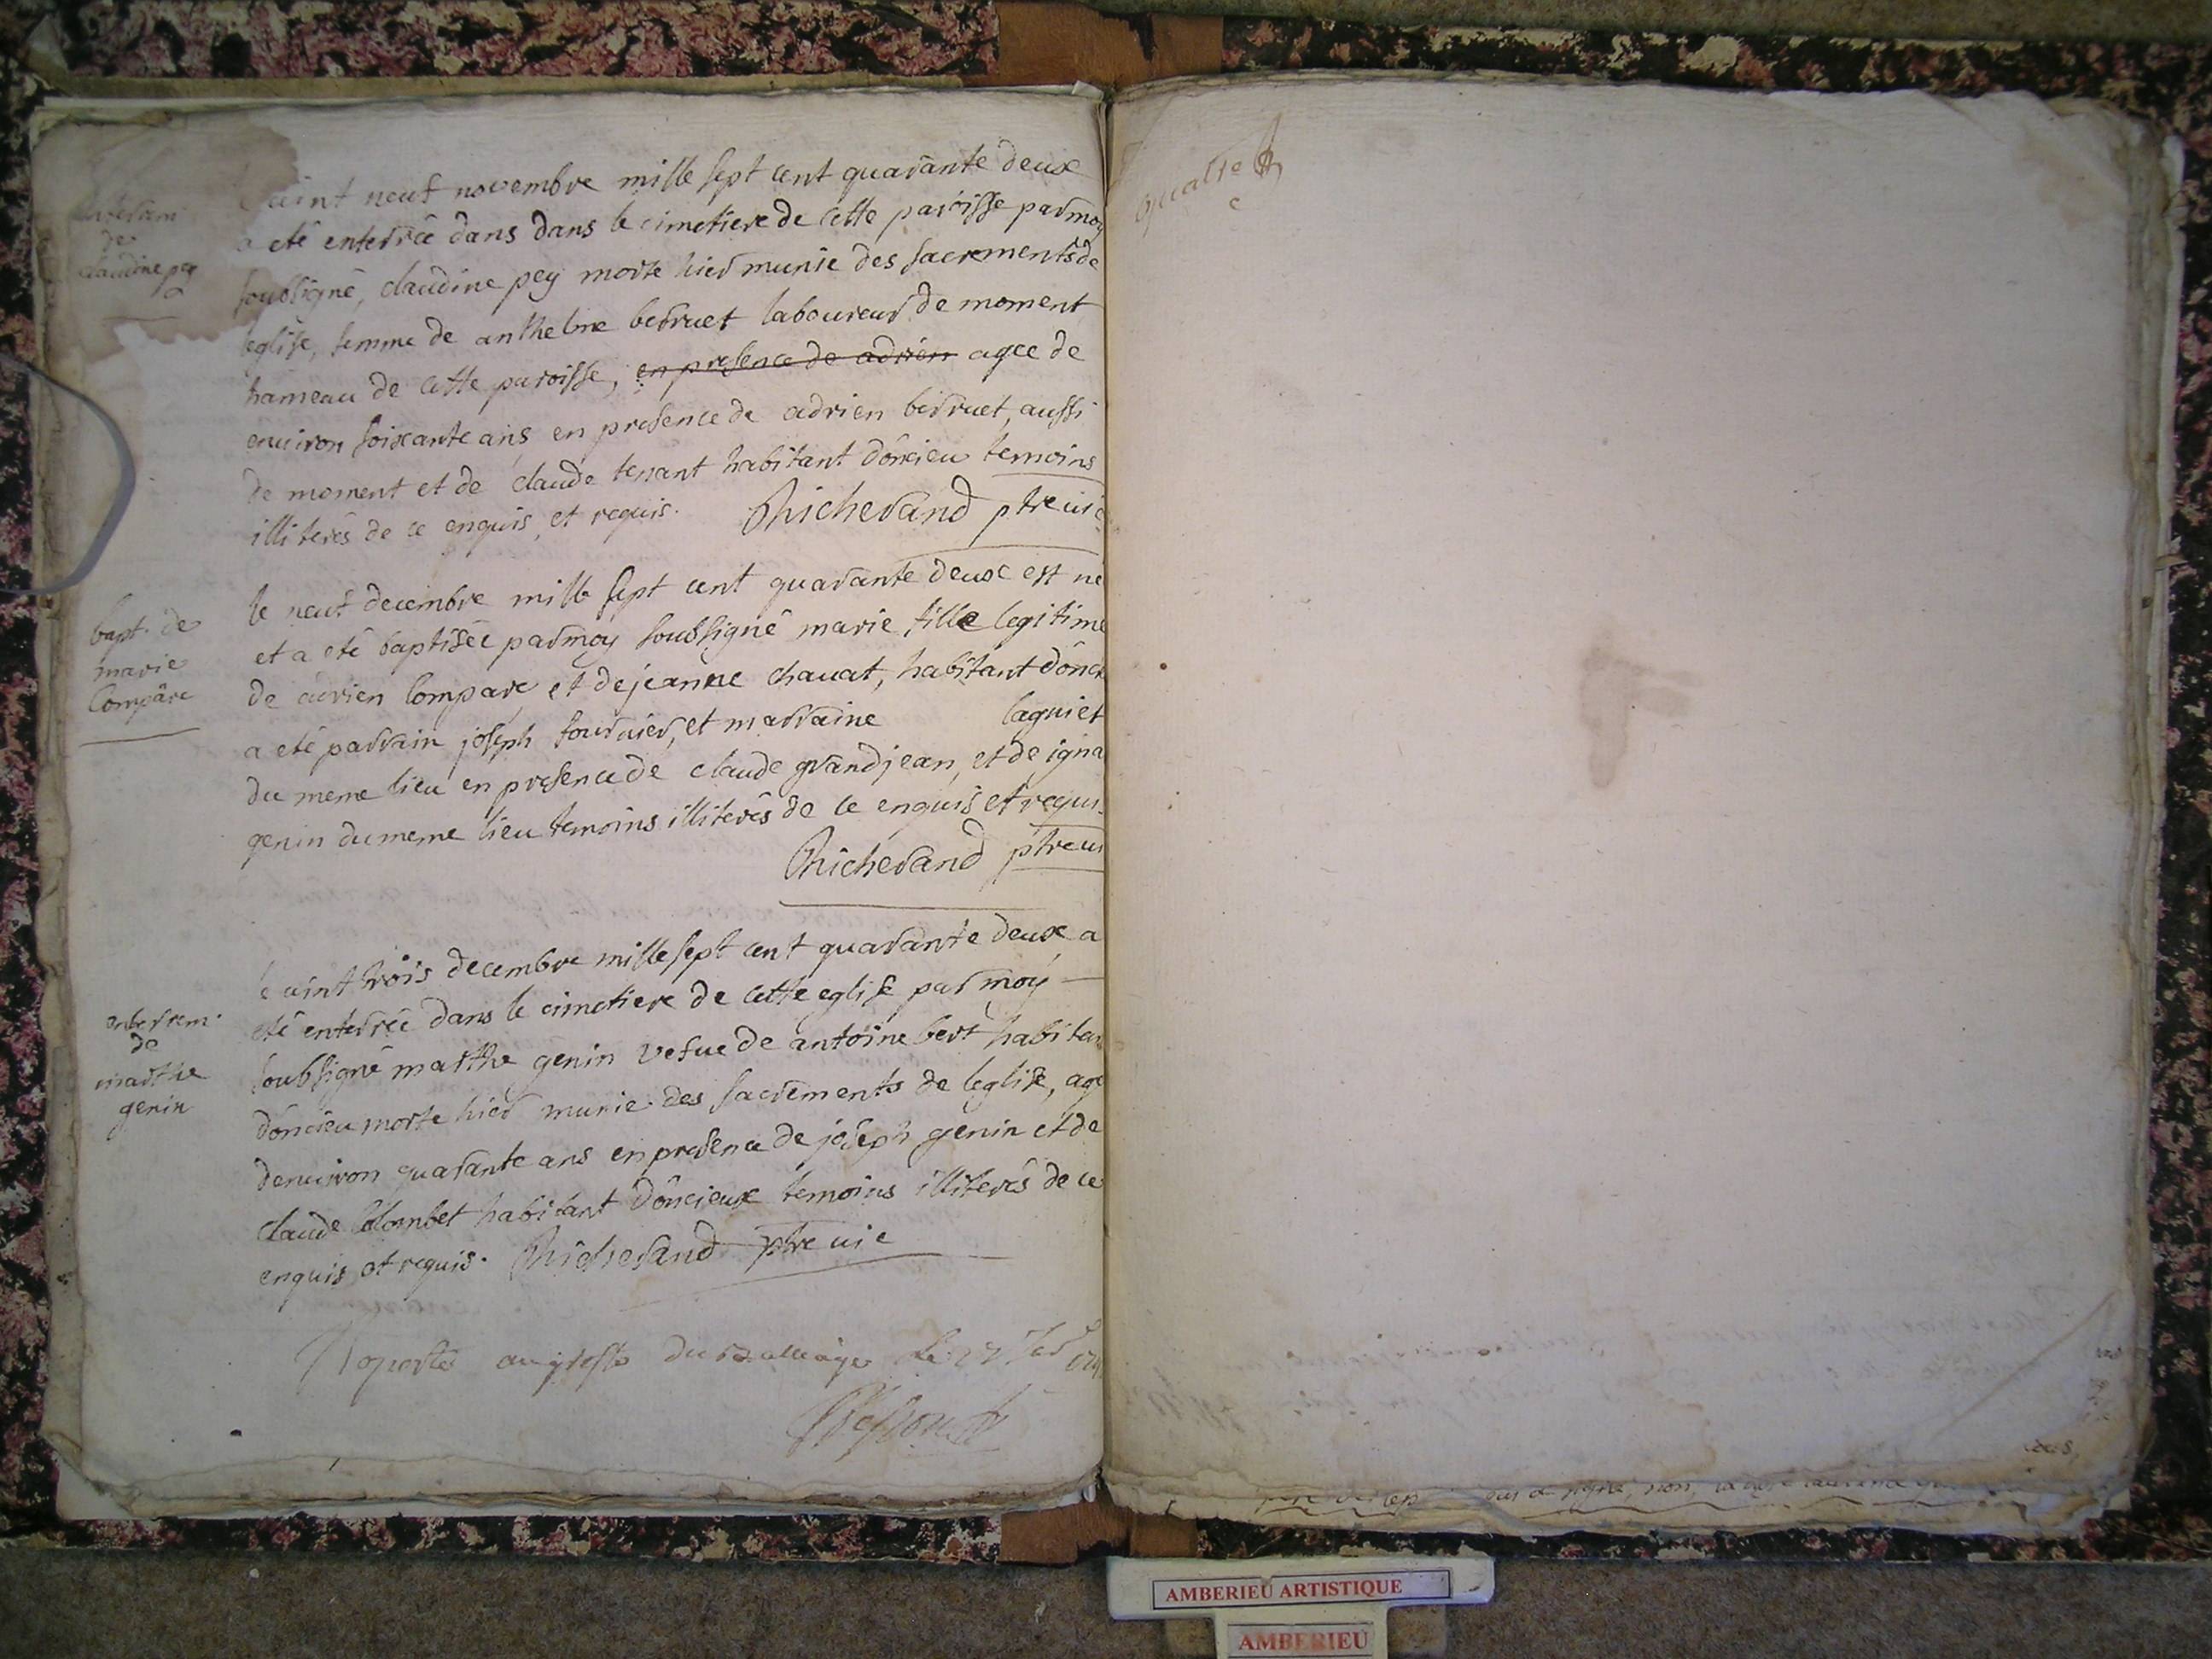 vint neuf novembre mille sept cent quarante deux
a eté enterrée dans dans le cimetiere de cette paroisse par moy
soubsigné, claudine pey morte hier munie des sacrements de
leglise, femme de anthelme berruet laboureur de moment
hameau de cette paroisse, en presence de adrien agee de
environ soixante ans, en presence de adrien berruet, aussi
de moment et de claude tenant habitant dôncieu temoins
illiterés de ce enquis, et requis. Richerand ptre vic
enterrem
de
claudine pey
le neuf decembre mille sept cent quarante deux est né
et a eté baptisée par moy soubsigné marie fille legitime
de adrien Compare, et de jeanne chavat, habitant dônci
a eté parrain joseph fournier, et marraine laguiet
du meme lieu en presence de claude grandjean, et de igna
genin du meme lieu temoins illiterés de ce enquis et requis
Richerand ptre vi
bapt. de
marie
Compâre
le vint trois decembre mille sept cent quarante deux a
eté enterrée dans le cimetiere de cette eglise par moy
soubsigné marthe genin vefue de antoine bert habitan
dôncieu morte hier munie des sacrements de leglise, age
denviron quarante ans en presence de joseph genin et de
claude Colombet habitant dôncieux temoins illiterés de ce
enquis, et requis. Richerand ptre vic
enterrem.
de
marthe
genin
au greffe du Le
quatre
AMBERIEU ARTISTIQUE
AMBERIEU